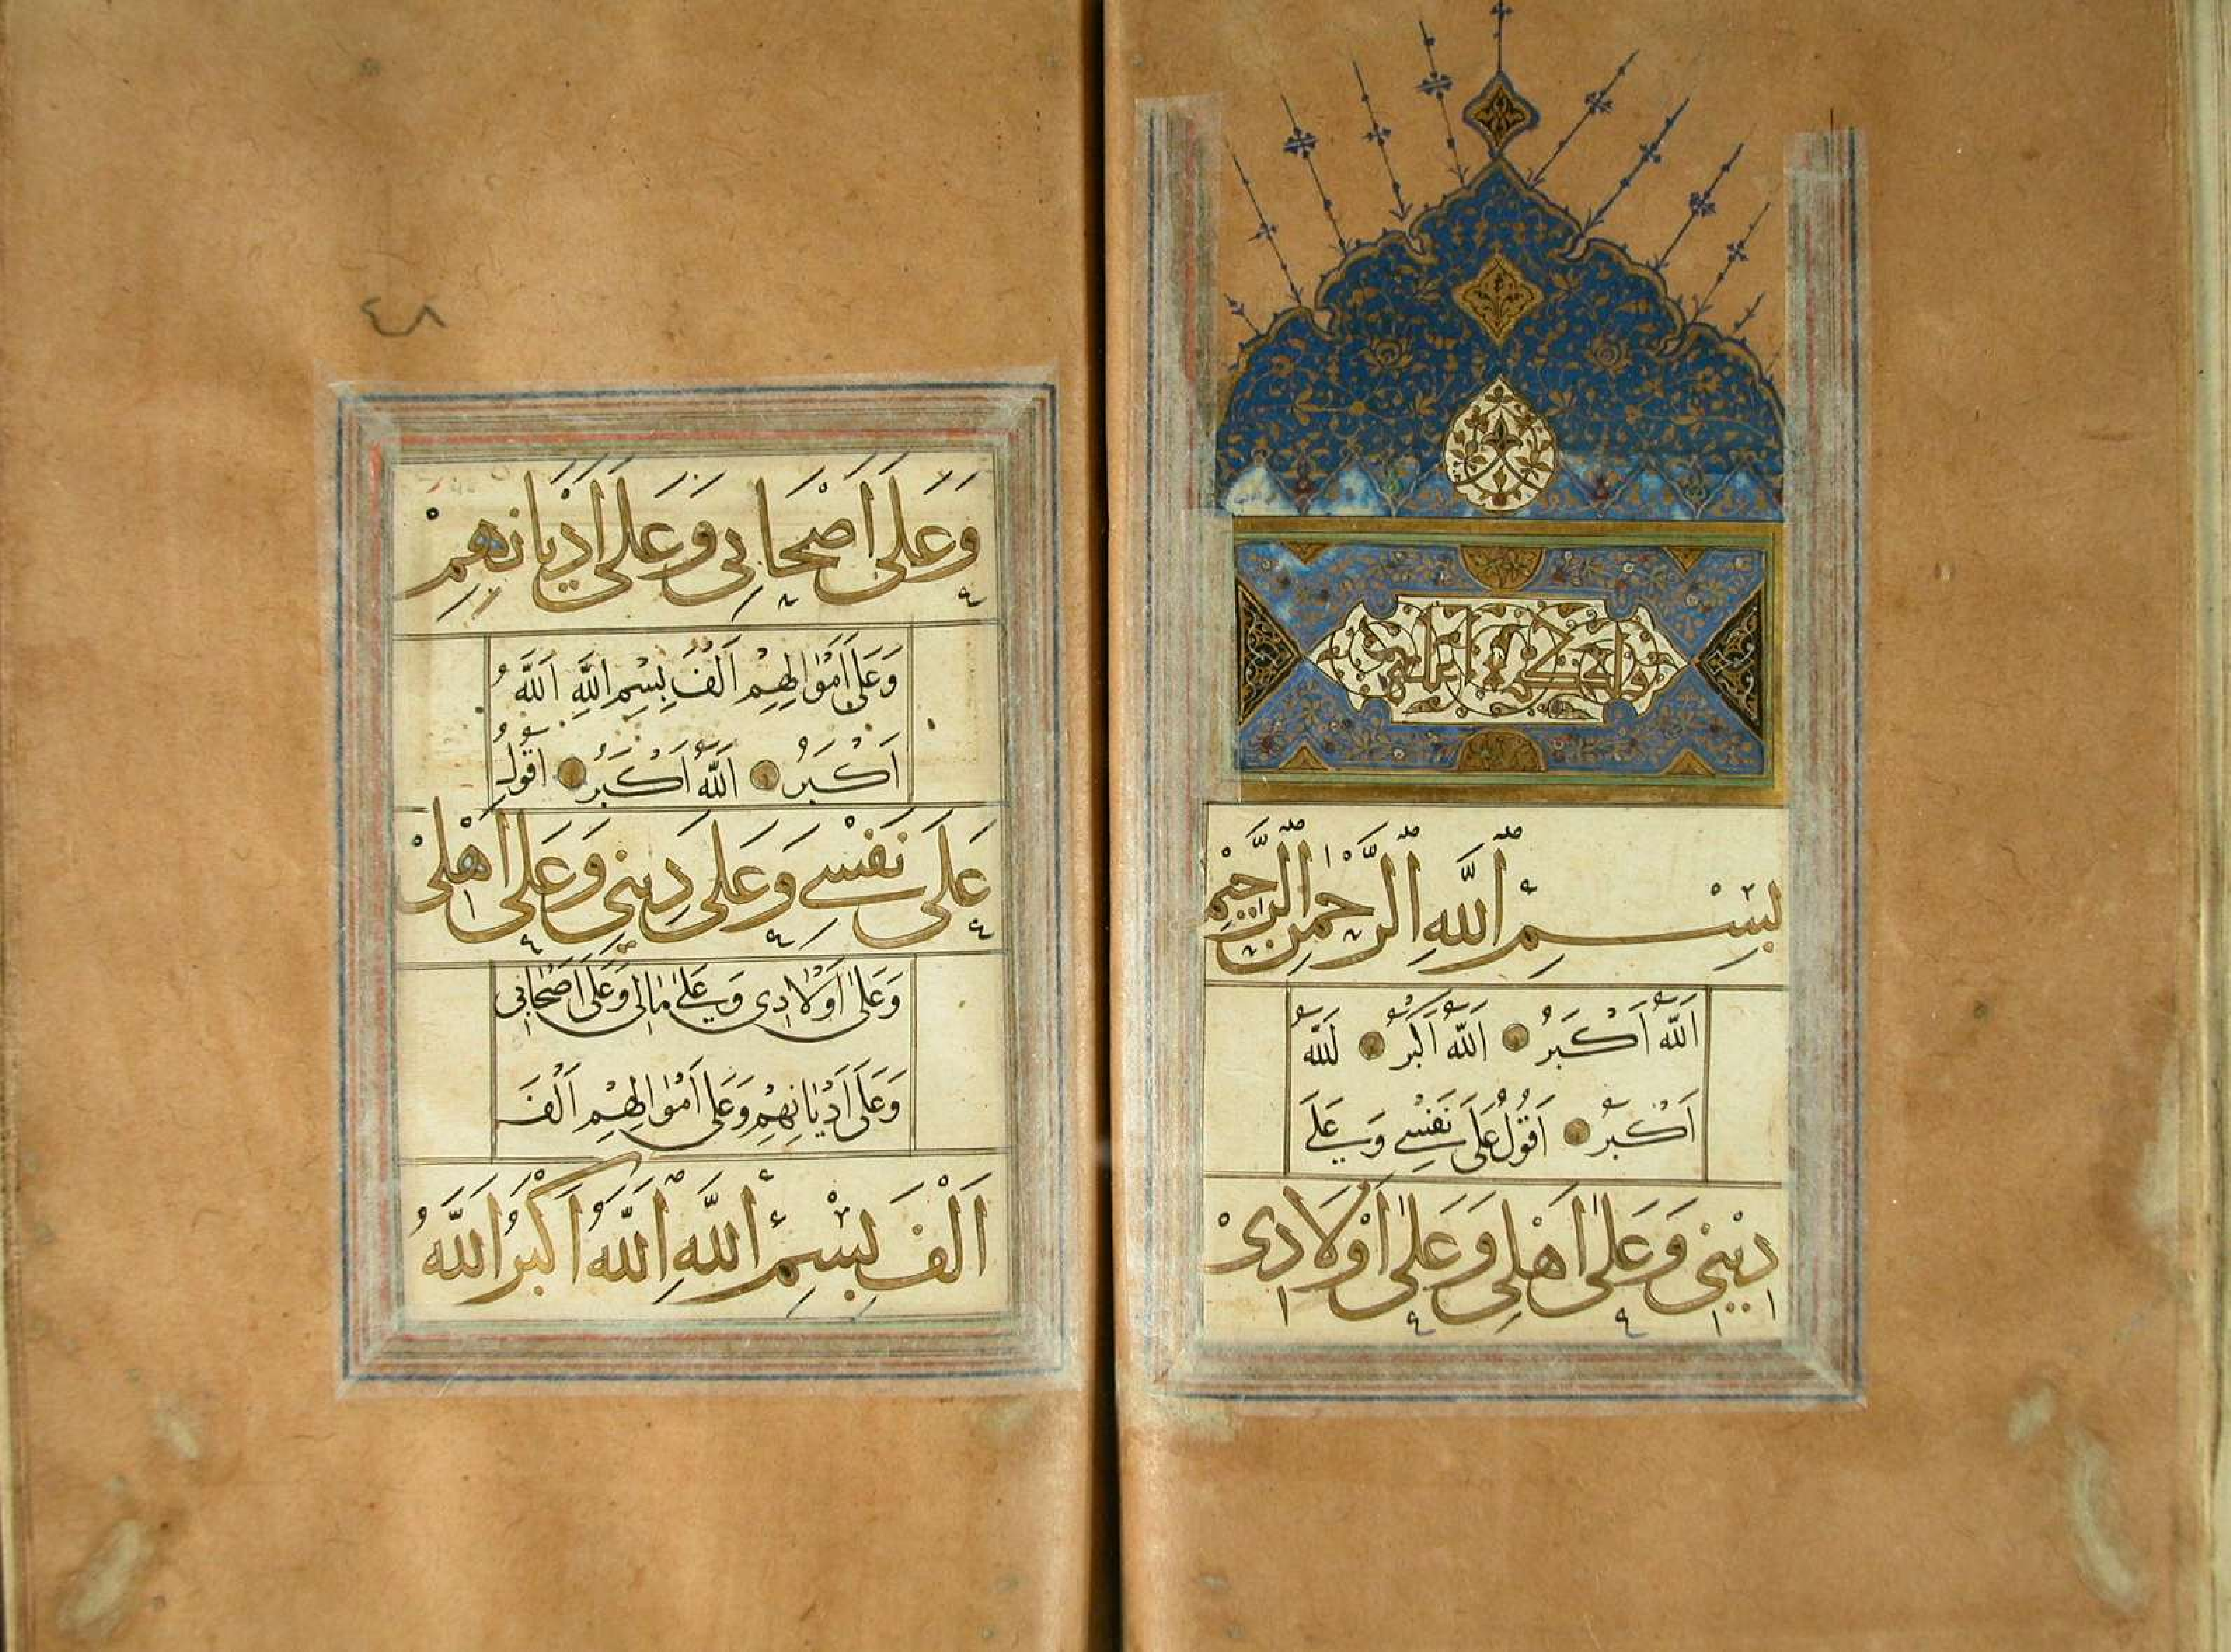 بِسْمِ اللَّهِ الرَّحْمٰنِ الرَّحِيْمِ
اَللّٰهُ اَكْبَرُ اَللّٰهُ اَكْبَرُ اَللّٰهُ
اَكْبَرُ اَقُوْلُ عَلَى نَفْسِى وَعَلَى
دِيْنِى وَعَلٰى اَهْلِى وَعَلٰى اَوْلَادِىْ
٤٨
وَعَلَى اَصْحَابِى وَعَلَى اَدْيَانِهِمْ
وَعَلَى اَمْوَالِهِمْ اَلْفَ بِسْمِ اللَّهِ اَللَّهُ
اَكْبَرُ اَللّٰهُ اَكْبَرُ اَقُوْلُ
عَلَى نَفْسِى وَعَلَى دِيْنِى وَعَلَى اَهْلِىْ
وَعَلٰى اَوْلَادِى وَعَلٰى مَالِى وَعَلَى اَصْحَابِى
وَعَلَى اَدْيَانِهِمْ وَعَلَى اَمْوَالِهِمْ اَلْفَ
اَلْفِ بِسْمِ اللَّهِ اَللّٰهُ اَكْبَرُ اَللَّهُ